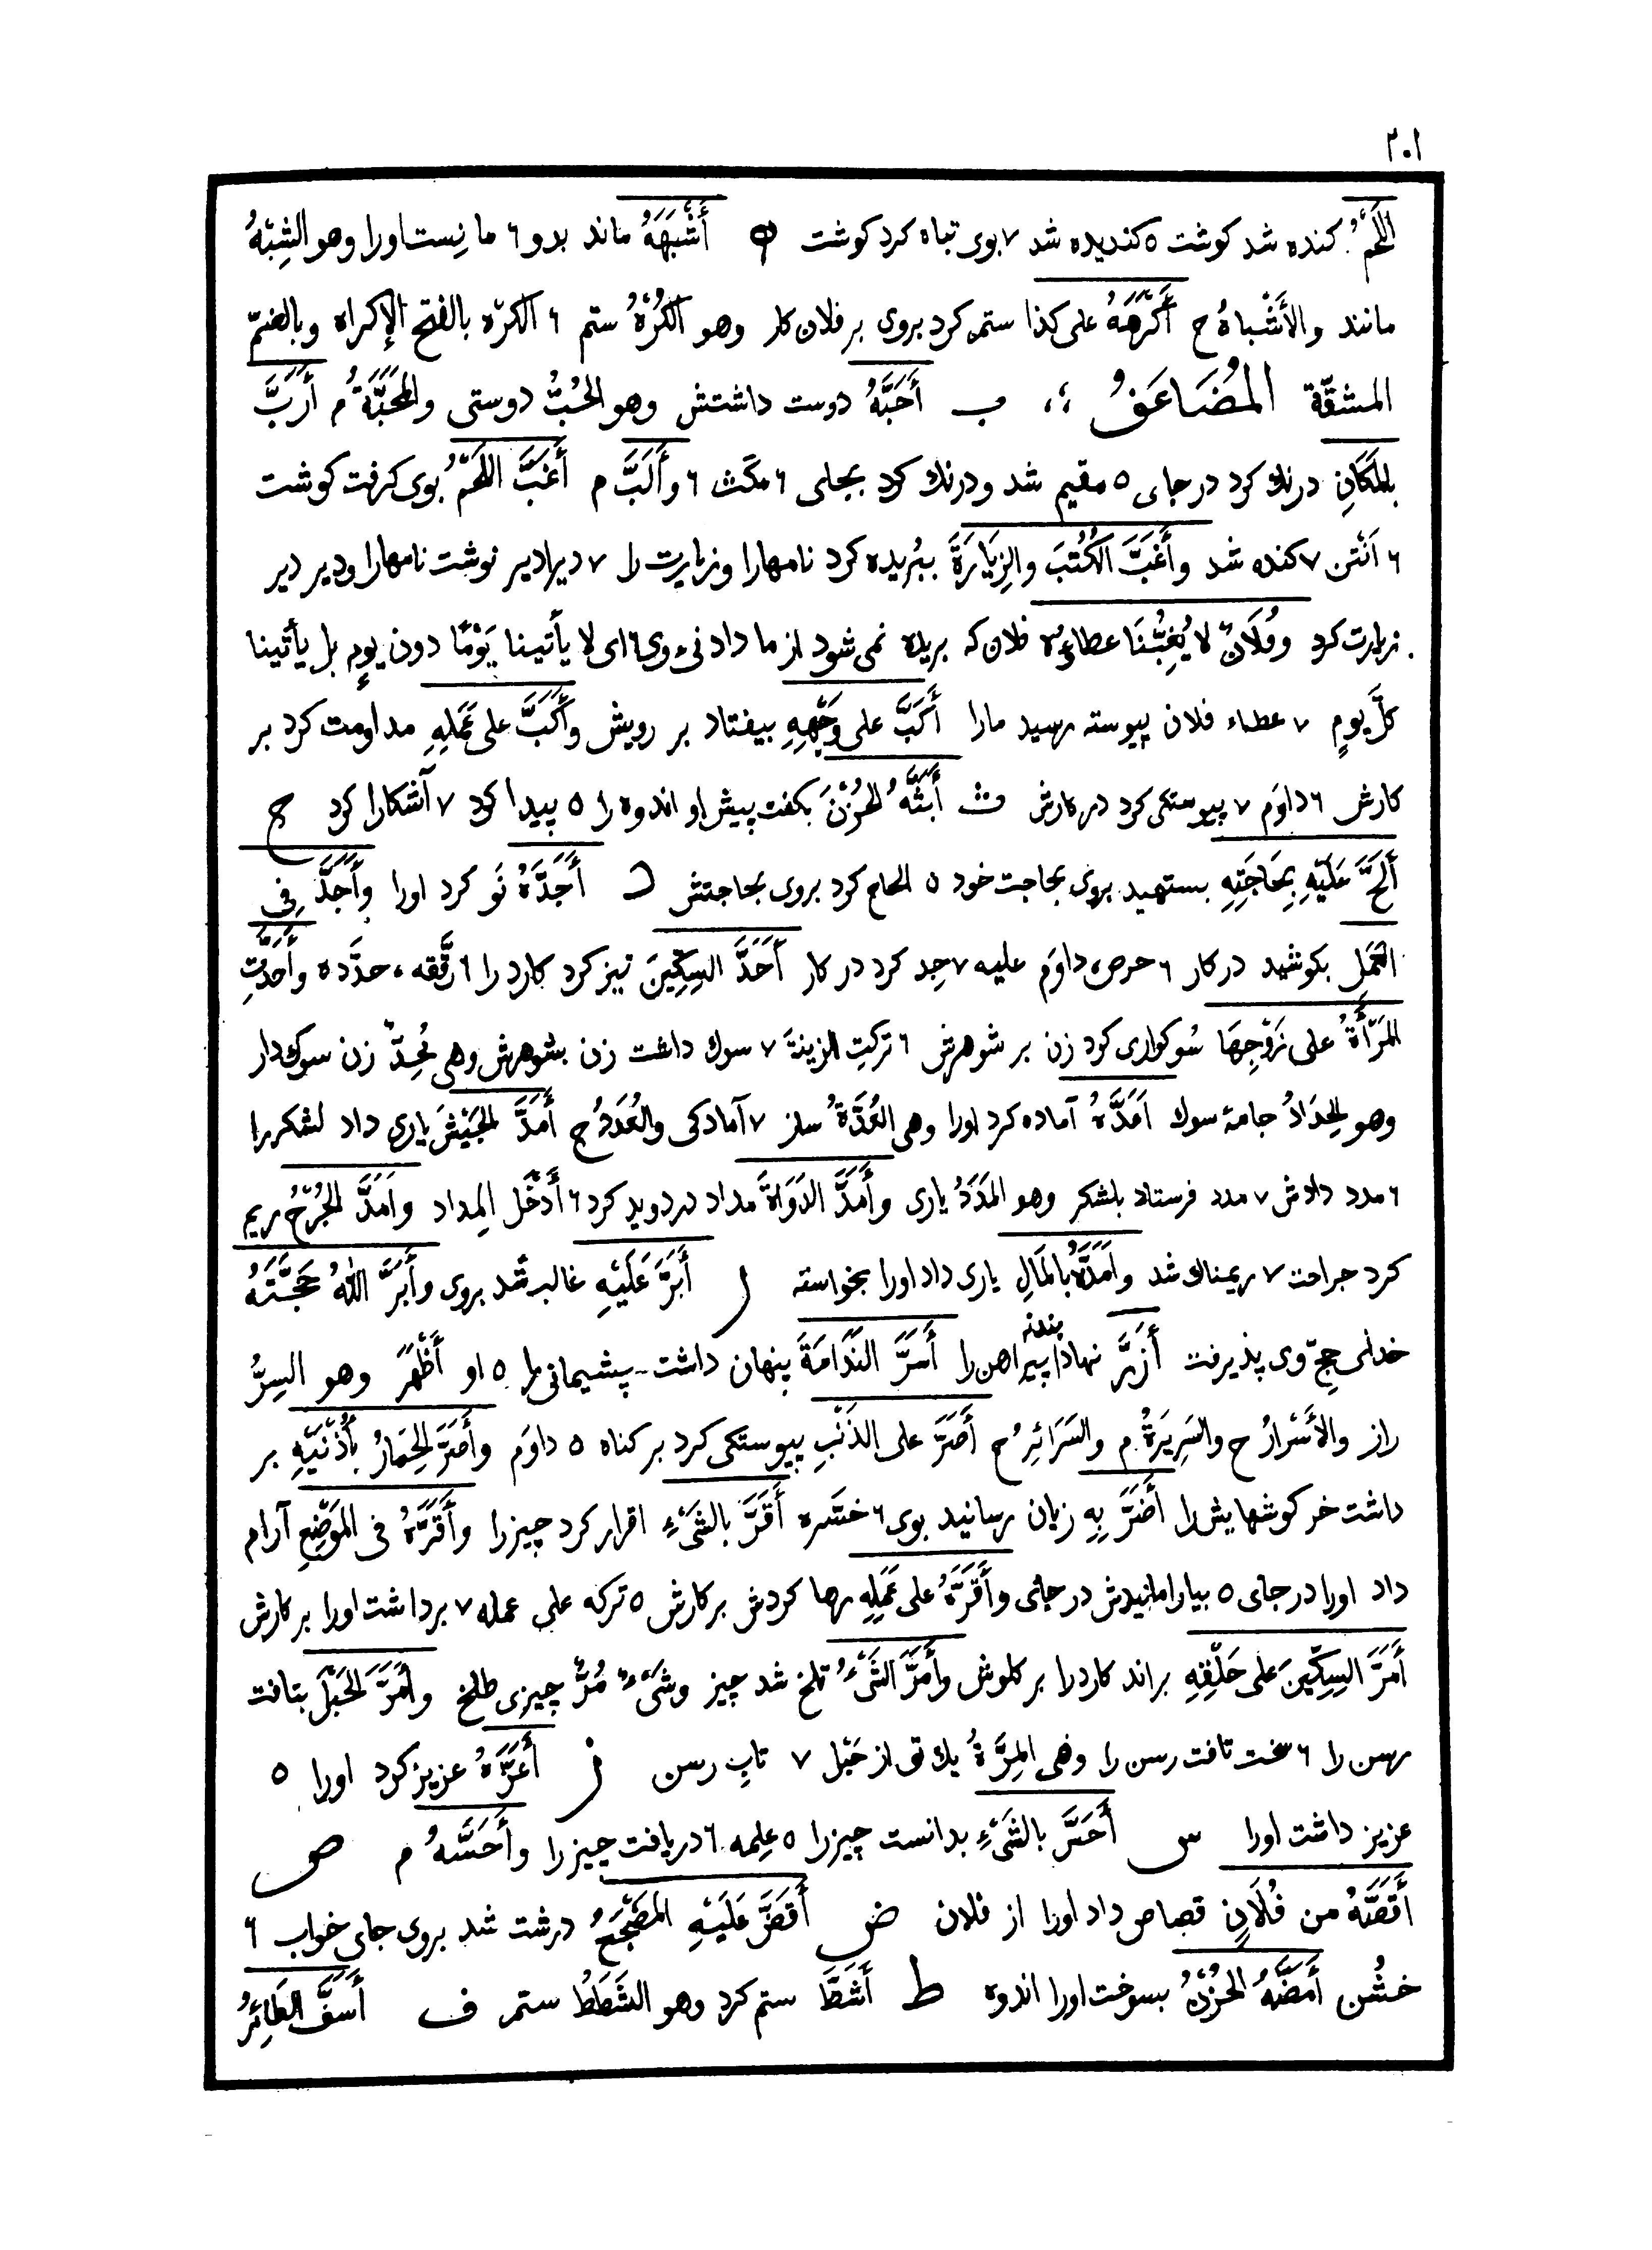 ٢٠١
اللَّحْمُ كنده شد كوشت ٥ كنديده شد ٧ بوى تباه كرد كوشت ه أَشْبَهَهُ ماند بدو ٦ مانِست اورا وهو الشِبْهُ
مانند والأَشْباهُ ج أَكْرَهَهُ على كذا ستم كرد بروى بر فلان كار وهو الكُرْهُ ستم ٦ الكرْه بالفتح الإكراه وبالضمّ
المشقّة المُضَاعَفُ ؛، ب أَحَبَّهُ دوست داشتش وهو الحُبُّ دوستى والمَحَبَّةُ م أَرَبَّ
بالمَكَانِ درنك كرد در جاى ٥ مقيم شد ودرنك كرد بجاى ٦ مكَث ٦ وأَلَبَّ م أَغَبَّ اللَّحْمُ بوى كرفت كوشت
٦ اَنْتن ٧ كنده شد وأَغَبَّ الكُتُبَ والزِيَارَةَ ببُريده كرد نامهارا وزيارت را ٧ ديرادير نوشت نامهارا ودير دير
زيارت كرد وفُلَانٌ لا يُغِبُّنَا عطاءُهُ فلان كه بريده نمى شود از ما دادنىء وى ٦ اى لا يأتينا يَوْمًا دون يومٍ بل يأتينا
كلَّ يومٍ ٧ عطاء فلان پيوسته رسيد مارا أَكَبَّ على وَجْهِهِ بيفتاد بر رويش وأَكَبَّ على عَمَلِهِ مداومت كرد بر
كارش ٦ داوَم ٧ پيوستكى كرد در كارش ث أَبَثَّهُ الحُزْنَ بكفت پيش او اندوه را ٥ پيدا كرد ٧ آشكارا كرد ج
أَلَحَّ عَلَيْهِ بِحَاجَتِهِ بستهيد بروى بحاجت خود ٥ الحاح كرد بروى بحاجتش د أَجَدَّهُ نَو كرد اورا وأَجَدَّ فِى
العَمَلِ بكوشيد در كار ٦ حرص، داوَم عليه ٧ جِد كرد در كار أَحَدَّ السِكِّينَ تيز كرد كارد را ٦ رقَّقه، حدَّده وأَحَدَّتِ
المَرْأَةُ على زَوْجِهَا سُوكوارى كرد زن بر شوهرش ٦ تركتِ الزينة ٧ سوك داشت زن بشوهرش وهى مُحِدٌّ زن سوك دار
وهو الحِدَادُ جامهٔ سوك اَعَدَّهُ آماده كرد اورا وهى العُدَّةُ ساز ٧ آمادكى والعُدَدُ ج أَمَدَّ الجَيْشَ يارى داد لشكررا
٦ مدد دادش ٧ مدد فرستاد بلشكر وهو المَدَدُ يارى وأَمَدَّ الدَوَاةَ مداد در دويد كرد ٦ أَدْخَل المِداد واَمَدَّ الجُرْحُ ريم
كرد جراحت ٧ ريمناك شد واَمَدَّهُ بالمَالِ يارى داد اورا بخواسته ر أَبَرَّ عَلَيْهِ غالب شد بروى وأَبَرَّ اللهُ حَجَّتَهُ
خداى حجّ وى پذيرفت أَزَرَّ نهاد پيراهن را أَسَرَّ النَدَامَةَ پنهان داشت پشيمانى را ٥ او أَظْهَر وهو السِرُّ
راز والأَسْرارُ ج والسَرِيَرةُ م والسَرَائِرُ ج أَصَرَّ على الذَنْبِ پيوستكى كرد بر كناه ٥ داوَم وأَصَرَّ الحِمَارُ بِأُذْنَيْهِ بر
داشت خر كوشهايش را أَضَرَّ بِهِ زيان رسانيد بوى ٦ خسّره أَقَرَّ بالشَىْءِ اقرار كرد چيزرا وأَقَرَّهُ فى المَوْضِعِ آرام
داد اورا در جاى ٥ بيارامانيدش در جاى وأَقَرَّهُ على عَمَلِهِ رها كردش بر كارش ٥ تركه على عمله ٧ برداشت اورا بر كارش
أَمَرَّ السِكِّينَ على حَلْقِهِ براند كاردرا بر كلوش وأَمَرَّ الشَىْءُ تلخ شد چيز وشَىْءٌ مُرٌّ چيزى طلخ وأَمَرَّ الحَبْلَ بتافت
رسن را ٦ سخت تافت رسن را وهى المِرَّةُ يك توى از حَبْل ٧ تابِ رسن ز أَعَزَّهُ عزيز كرد اورا ٥
عزيز داشت اورا س أَحَسَّ بالشَىْءِ بدانست چيزرا ٥ علِمه ٦ دريافت چيزرا وأَحَسَّهُ م ص
أَقَصَّهُ من فُلَانٍ قصاص داد اورا از فلان ض أَقَضَّ عَلَيْهِ المَضْجَعُ درشت شد بروى جاى خواب ٦
خشُن أَمَضَّهُ الحُزْنُ بسوخت اورا اندوه ط أَشَطَّ ستم كرد وهو الشَطَطُ ستم ف أَسَفَّ الطَائِرُ